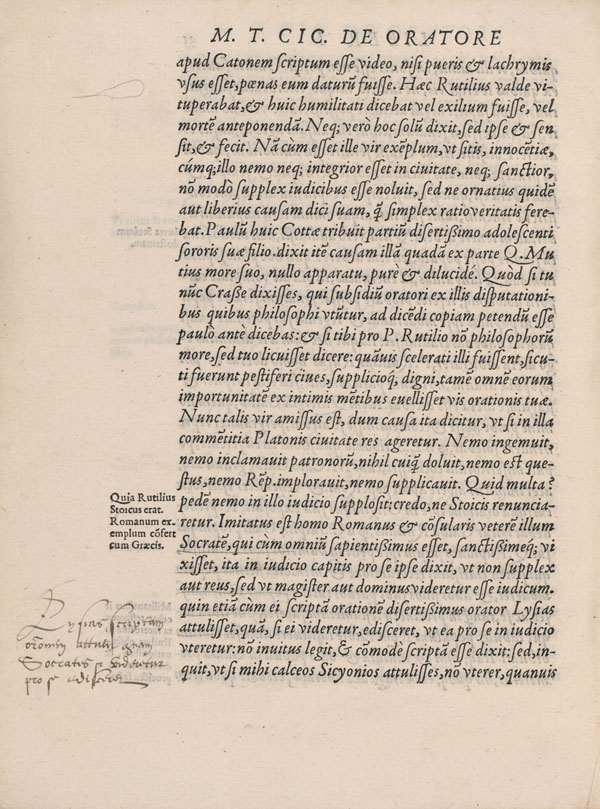 M. T. CIC. DE ORATORE
apud Catonem scriptum esse video, nisi pueris & lachrymis
vsus esset, pœnas eum daturũ fuisse. Hæc Rutilius valde vi-
tuperabat, & huic humilitati dicebat vel exilium fuisse, vel
mortẽ anteponendã. Neq; verò hoc solũ dixit, sed ipse & sen
sit, & fecit. Nã cùm esset ille vir exẽplum, vt sitis, innocẽtiæ,
cúmq; illo nemo neq; integrior esset in ciuitate, neq; sanctior,
nõ modò supplex iudicibus esse noluit, sed ne ornatius quidẽ
aut liberius causam dici suam, q̃ simplex ratio veritatis fere-
bat. Paulũ huic Cottæ tribuit partiũ disertißimo adolescenti
sororis suæ filio. dixit itẽ causam illã quadã ex parte Q. Mu
tius more suo, nullo apparatu, purè & dilucidé. Quòd si tu
nũc Crasse dixisses, qui subsidiũ oratori ex illis disputationi-
bus quibus philosophi vtũtur, ad dicẽdi copiam petendũ esse
paulò antè dicebas: & si tibi pro P. Rutilio nõ philosophorũ
more, sed tuo licuisset dicere: quãuis scelerati illi fuissent, sicu-
ti fuerunt pestiferi ciues, supplicioq́, digni, tamẽ omnẽ eorum
importunitatẽ ex intimis mẽtibus euellisset vis orationis tuæ.
Nunc talis vir amissus est, dum causa ita dicitur, vt si in illa
commẽtitia Platonis ciuitate res ageretur. Nemo ingemuit,
nemo inclamauit patronorũ, nihil cuiq̃ doluit, nemo est que-
stus, nemo Rẽp. implorauit, nemo supplicauit. Quid multa?
pedẽ nemo in illo iudicio supplosit: credo, ne Stoicis renuncia-
retur. Imitatus est homo Romanus & cõsularis veterẽ illum
Socratẽ, qui cùm omniũ sapientißimus esset, sanctißimeq; vi
xisset, ita in iudicio capitis pro se ipse dixit, vt non supplex
aut reus, sed vt magister aut dominus videretur esse iudicum.
quin etiã cùm ei scriptã orationẽ disertißimus orator Lysias
attulisset, quã, si ei videretur, edisceret, vt ea pro se in iudicio
vteretur: nõ inuitus legit, & cõmodè scriptã esse dixit: sed, in-
quit, vt si mihi calceos Sicyonios attulisses, nõ vterer, quanuis
Quia Rutilius
Stoicus erat.
Romanum ex-
emplum cõfert
cum Græcis.
Lysias scriptam
orõnem attulit quam
Socrates si videretur
pro se edisceret